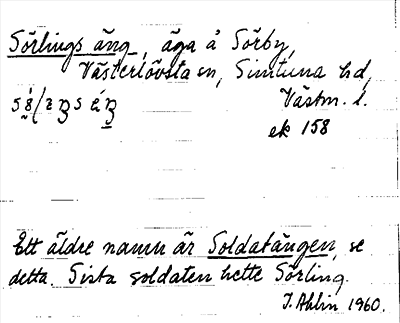 Sörlings äng, äga å Sörby,
Västerlövsta sn, Simtuna hd,
Västm. l.
ek 158
Ett äldre namn är Soldatängen, se
detta. Sista soldaten hette Sörling.
J. Ahlin 1960.